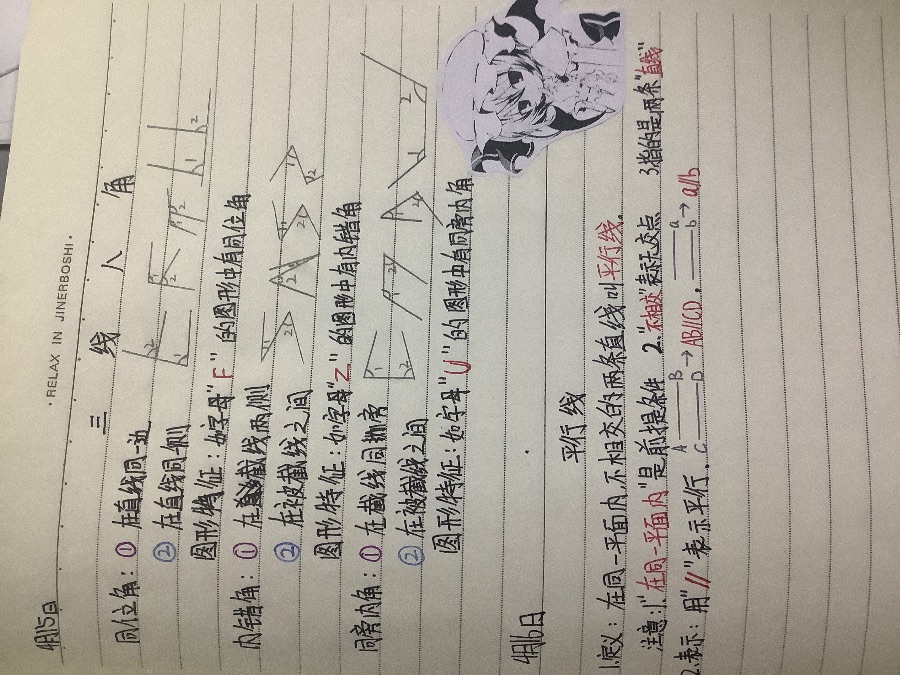 · RELAX IN JINERBOSHI ·
4月15日
三 线 八 角
同位角：① 在直线同一边
② 在直线同侧
图形特征：如字母"F"的图形中有同位角
内错角：① 在截线两侧
② 在被截线之间
图形特征：如字母"Z"的图形中有内错角
同旁内角：① 在截线同旁
② 在被截线之间
图形特征：如字母"U"的图形中有同旁内角
4月16日
平行线
1.定义：在同一平面内,不相交的两条直线叫平行线。
注意：1."在同一平面内"是前提条件 2."不相交"表示无交点 3.指的是两条"直线"
2.表示：用"//"表示平行. A B C D → AB//CD , a b → a//b